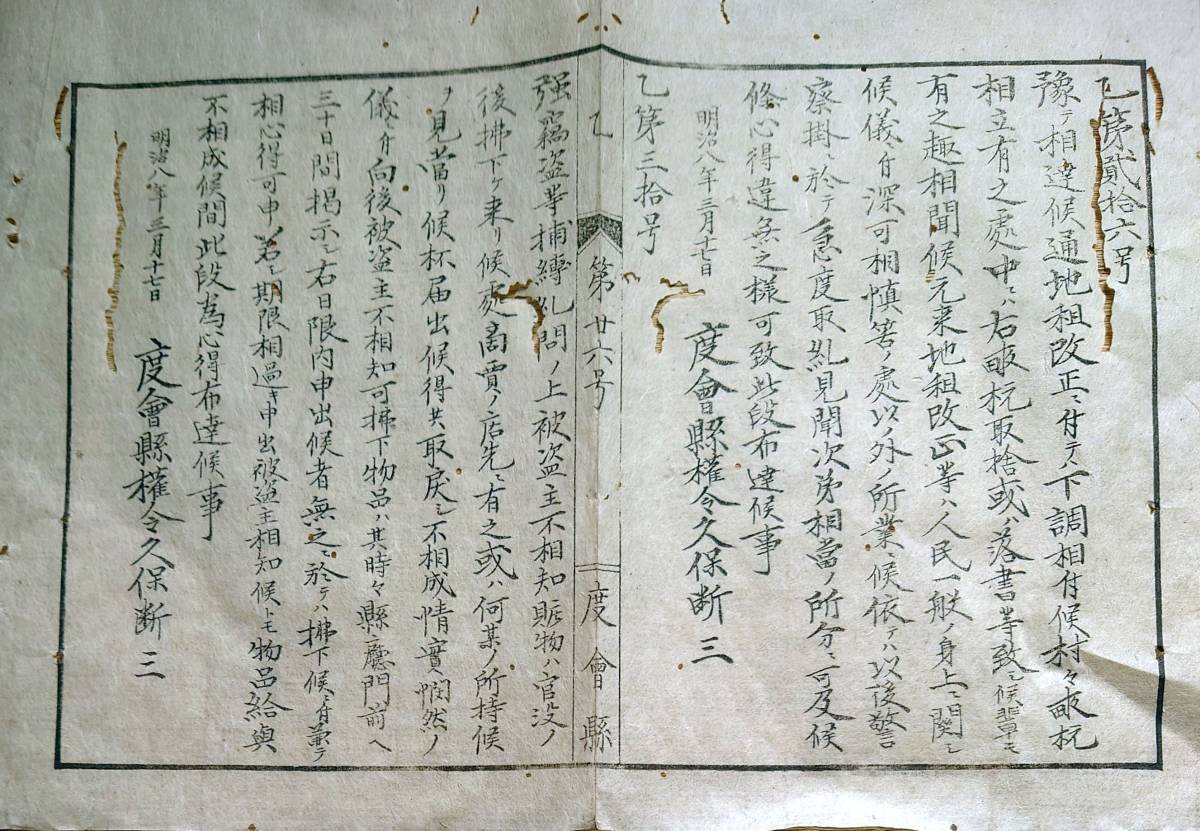 乙第貳拾六号
豫テ相達候通地租改正ニ付テハ下調相付候村々畝杭
相立有之處中ニハ右畝杭取捨或ハ落書等致シ候輩モ
有之趣相聞候元来地租改正等ハ人民一般ノ身上ニ関シ
候儀ニ付深可相慎筈ノ處以ノ外ノ所業ニ候依テハ以後警
察掛ニ於テ急度取糺見聞次第相當ノ所分ニ可及候
條心得違無之様可致此段布達候事
明治八年三月十七日
度會縣權令久保断三
乙第三拾号
乙第廿六号
度會縣
强竊盗等捕縛糺問ノ上被盗主不相知賍物ハ官没ノ
後拂下ケ来リ候處商賈ノ店先ニ有之或ハ何某ノ所持候
ヲ見當リ候杯届出候得共取戻シ不相成情實憫然ノ
儀ニ付向後被盗主不相知可拂下物品ハ其時々縣廳門前ヘ
三十日間掲示シ右日限内申出候者無之ニ於テハ拂下候ニ付兼テ
相心得可申若シ期限相過キ申出被盗主相知候トモ物品給與
不相成候間此段為心得布達候事
明治八年三月十七日
度會縣權令久保断三